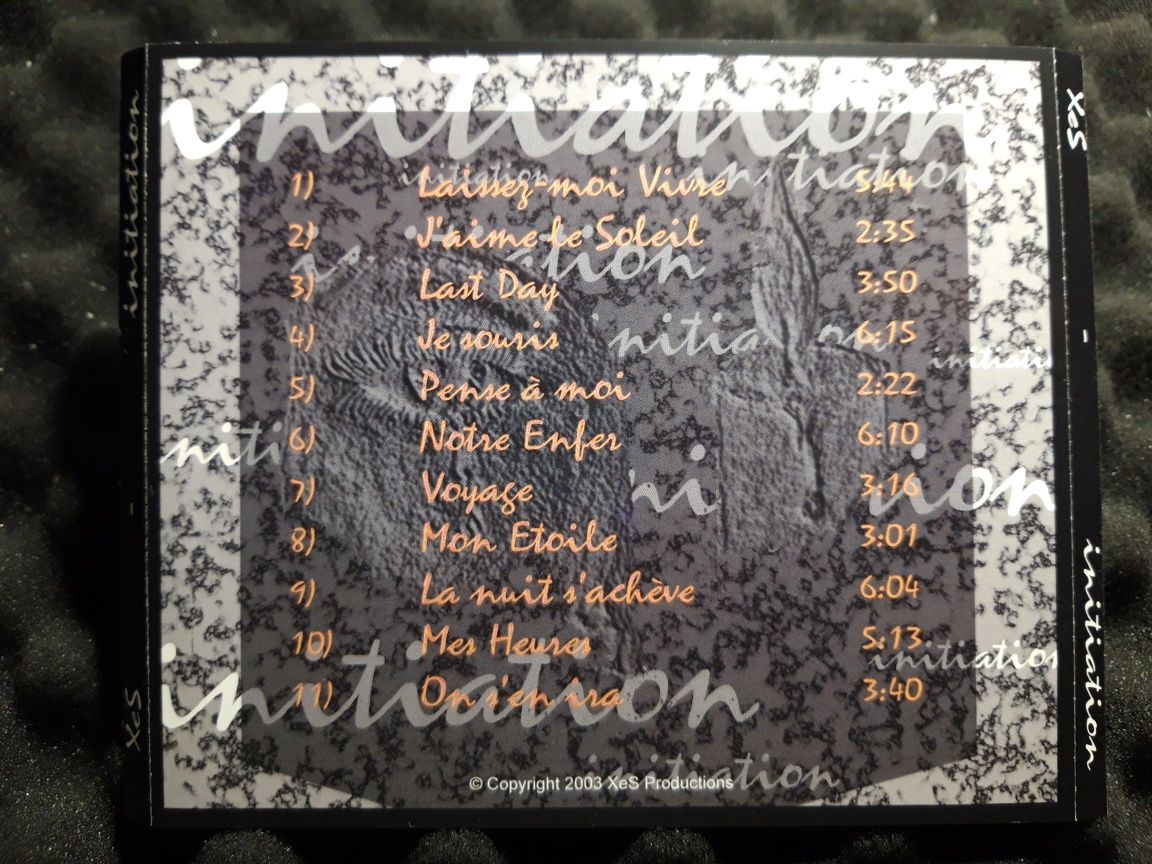 initiation
initiation
initiation
1) Laissez-moi Vivre 5:44
2) J'aime le Soleil 2:35
initiation
3) Last Day 3:50
initiation
4) Je souris 6:15
initiatio
5) Pense à moi 2:22
6) Notre Enfer 6:10
initi
7) Voyage 3:16
ni
ion
8) Mon Etoile 3:01
9) La nuit s'achève 6:04
10) Mes Heures 5:13
initiation
initiation
11) On s'en ira 3:40
initiation
© Copyright 2003 XeS Productions
XeS - initiation
XeS - initiation